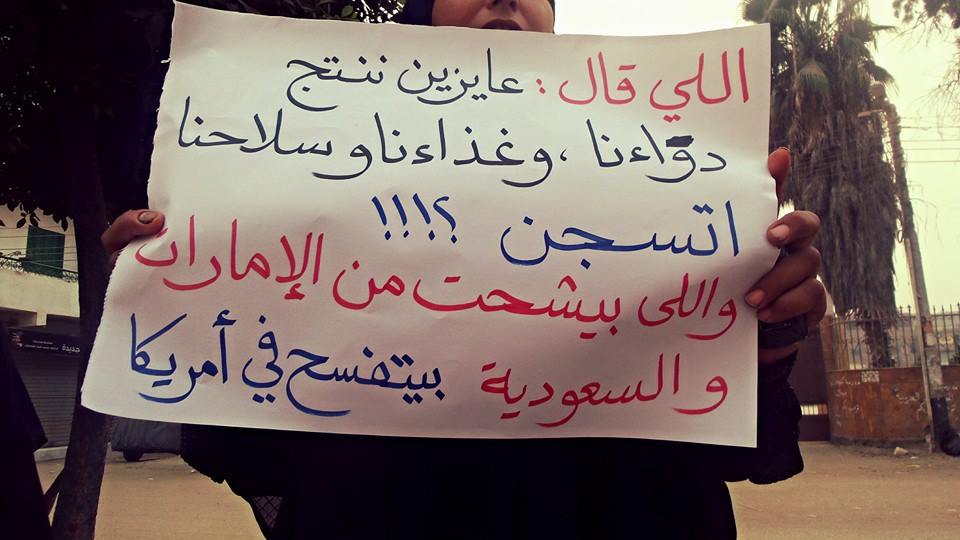 اللي قال : عايزين ننتج
دوّاءنا ، وغذاءنا و سلاحنا
اتسجن ؟!!!
واللى بيشحت من الإمارات
و السعودية بيتفسح في أمريكا
جديدة